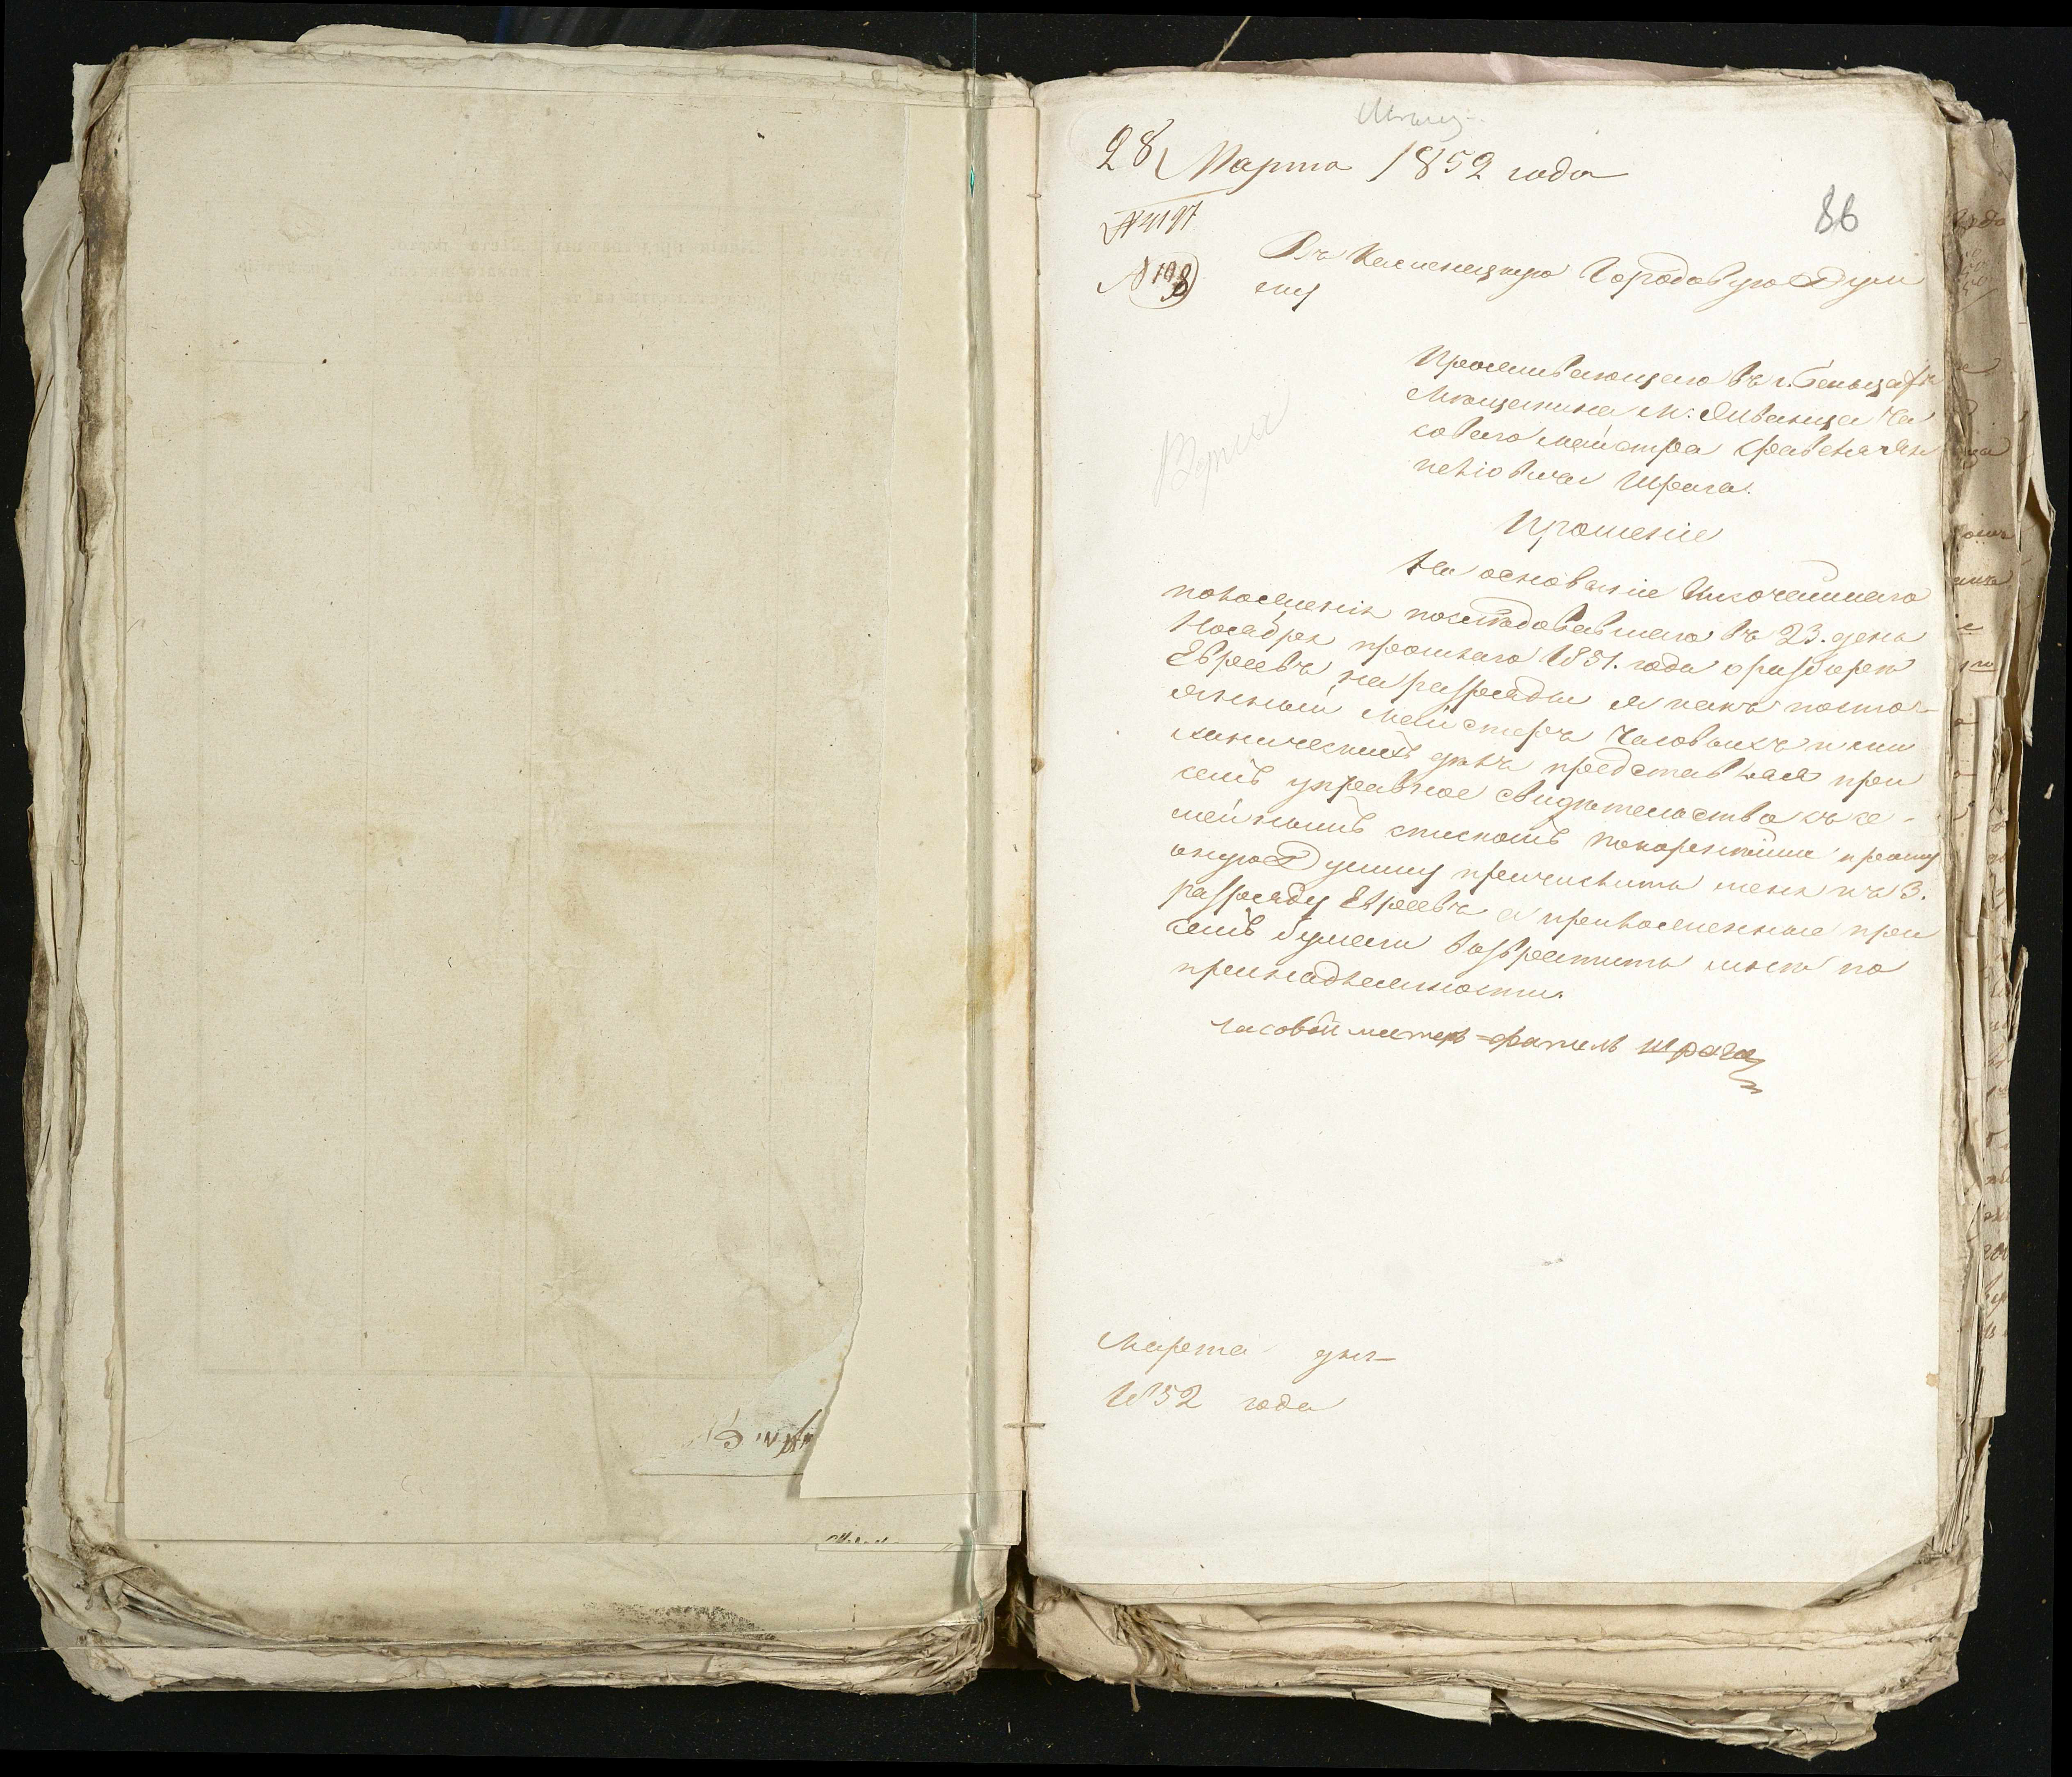 28 Марта 1852 года
86
№ 4197
№ 198
Въ Каменецкую Городовую Дум
ску
Проживающаго въ г. Бельцахъ
Мѣщанина м: Жванца Ча
соваго мейстра
Шрага.
Прошеніе
На основаніе Высочайшаго
повелѣнія последовавшаго въ 23. день
Ноября прошлаго 1851. года о разборѣ
Евреевъ на разряды я какъ посто-
янный мейстеръ часовыхъ и ме
ханическихъ дѣлъ представляя при
семъ управное свидѣтельство съ се-
мейнымъ спискомъ покорнейше прошу
оную Думу причислить меня къ 3.
разряду Евреевъ а приложенные при
семъ бумаги возвратить мнѣ по
принадлежности.
часовой мастеръ Фатель Шрага
Марта дня
1852 года